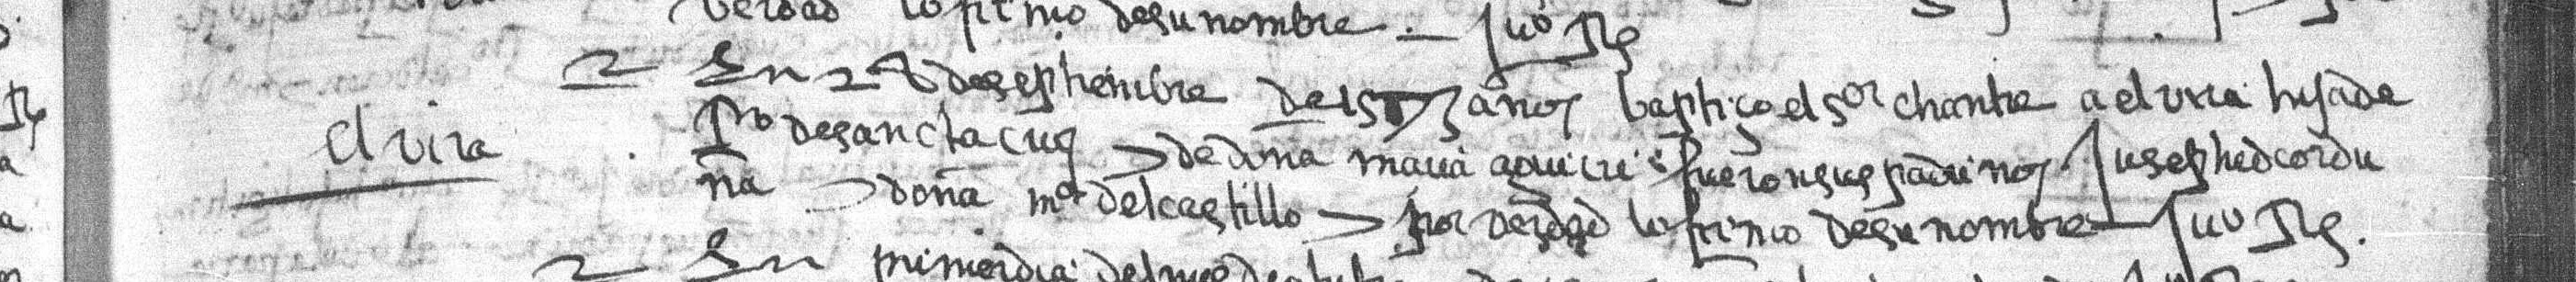 verdad lo firmo de su nombre — Juº Rs
En 28 de septiembre de 15 años baptiço el sor chantre a elvira hija de
Elvira
Pº de sancta cruz y de doña maria fueron sus padrinos Juseph de cordu
ña y doña mª del castillo y por verdad lo firmo de su nombre — Juº Rs.
En primer dia del mes de